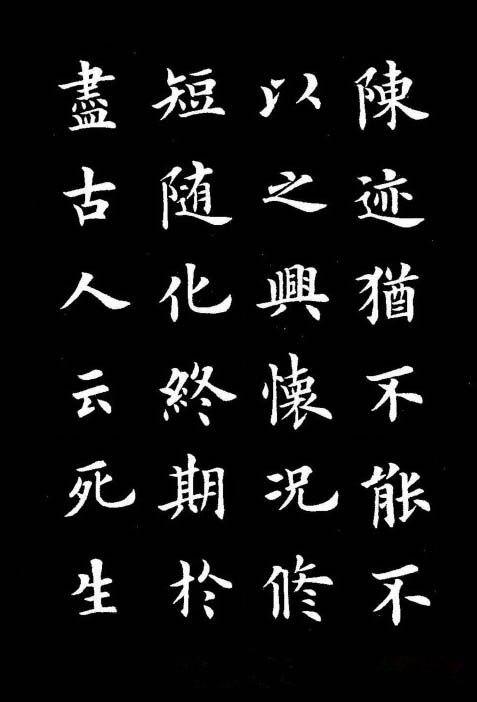 陳迹猶不能不
以之興懷况修
短随化終期於
盡古人云死生